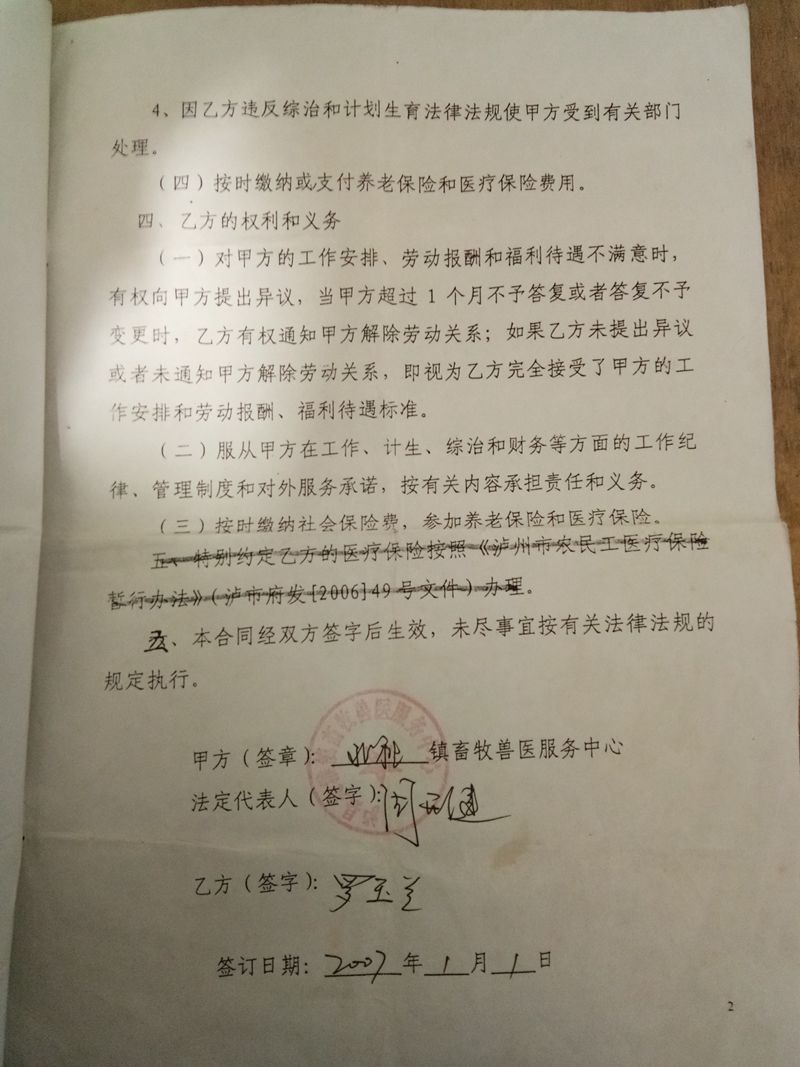 4、因乙方违反综治和计划生育法律法规使甲方受到有关部门
处理。
（四）按时缴纳或支付养老保险和医疗保险费用。
四、乙方的权利和义务
（一）对甲方的工作安排、劳动报酬和福利待遇不满意时，
有权向甲方提出异议，当甲方超过 1 个月不予答复或者答复不予
变更时，乙方有权通知甲方解除劳动关系；如果乙方未提出异议
或者未通知甲方解除劳动关系，即视为乙方完全接受了甲方的工
作安排和劳动报酬、福利待遇标准。
（二）服从甲方在工作、计生、综治和财务等方面的工作纪
律、管理制度和对外服务承诺，按有关内容承担责任和义务。
（三）按时缴纳社会保险费，参加养老保险和医疗保险。
五、特别约定乙方的医疗保险按照《泸州市农民工医疗保险
暂行办法》（泸市府发[2006]49 号文件）办理。
五、本合同经双方签字后生效，未尽事宜按有关法律法规的
规定执行。
甲方（签章）：镇畜牧兽医服务中心
法定代表人（签字）：
乙方（签字）：罗玉兰
签订日期：2007年1月1日
2